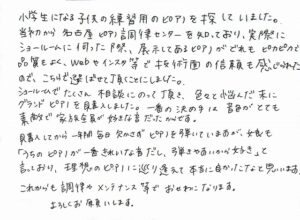 小学生になる子供の練習用のピアノを探していました。
当初から名古屋ピアノ調律センターを知っており、実際に
ショールームに伺った際、展示してあるピアノがどれもピカピカで
品質もよく、Webやインスタ等で 技術面の信頼も感じられた
ので、こちらで選ばせて頂くことにしました。
ショールームでたくさん相談にのって頂き、色々と悩んだ末に
グランドピアノを購入しました。一番の決め手は 音色がとても
素敵で家族全員が好きな音だったからです。
購入してから一年間毎日欠かさずピアノを弾いていますが、女児も
「うちのピアノが一番きれいな音だし、弾きやすいから好き」と
言っており、理想のピアノに巡り逢えて本当に良かったなと思います。
これからも調律やメンテナンス等でおせわになります。
よろしくお願いします。